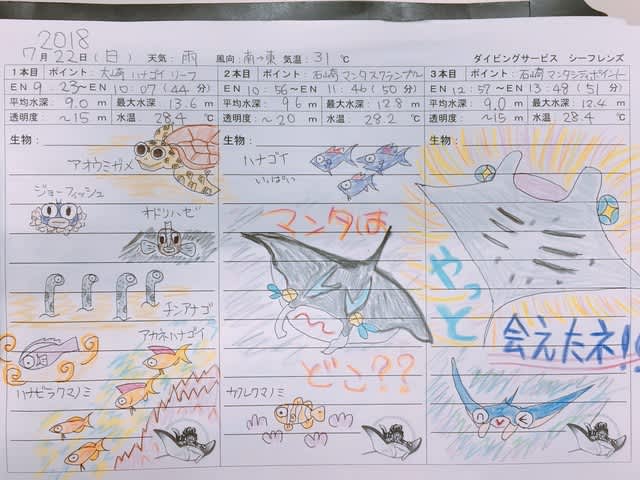 2018
7月22日(日) 天気: 雨 風向: 南→東 気温: 31 ℃ ダイビングサービス シーフレンズ
1本目 ポイント: 大崎 ハナゴイ リーフ
EN 9:23～EN 10:07 (44分)
平均水深: 9.0 m 最大水深: 13.6 m
透明度: ~15 m 水温: 28.4 ℃
生物:
アオウミガメ
ジョーフィッシュ
オドリハゼ
チンアナゴ
アカネハナゴイ
ハナビラクマノミ
2本目 ポイント: 石崎 マンタスクランブル
EN 10:56～EN 11:46 (50分)
平均水深: 9.6 m 最大水深: 12.8 m
透明度: ~20 m 水温: 28.2 ℃
生物:
ハナゴイ
いっぱい
マンタは
どこ??
カクレクマノミ
3本目 ポイント: 石崎 マンタシティポイント
EN 12:57～EN 13:48 (51分)
平均水深: 9.0 m 最大水深: 12.4 m
透明度: ~15 m 水温: 28.4 ℃
生物:
やっと
会えたネ!!